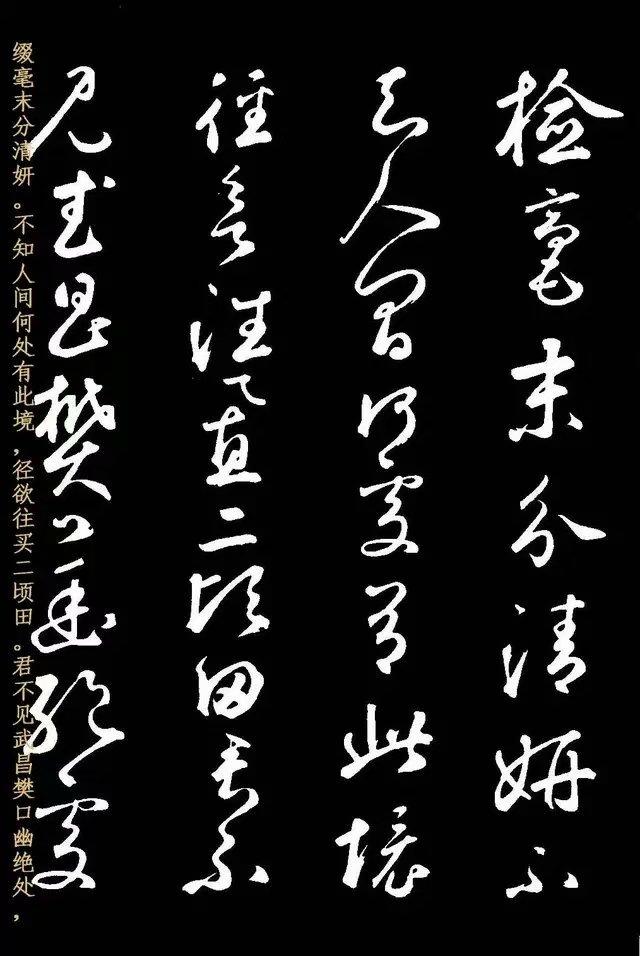 检毫末分清妍不
知人间何处有此境
径欲往买二顷田君不
见武昌樊口幽绝处
缀毫末分清妍。不知人间何处有此境，径欲往买二顷田。君不见武昌樊口幽绝处，